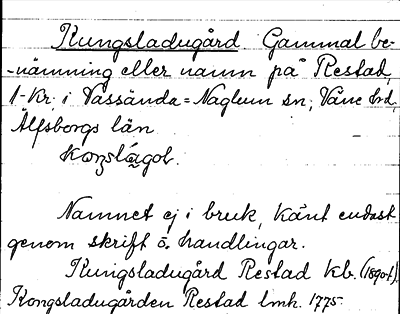 Kungsladugård. Gammal be-
-nämning eller namn på Restad,
1-Kr. i Vassända=Naglum sn, Väne hd,
Älfsborgs län
Namnet ej i bruk, känt endast
genom skrift o. handlingar.
Kungsladugård Restad kb. (1890t).
Kongsladugården Restad lmh. 1775